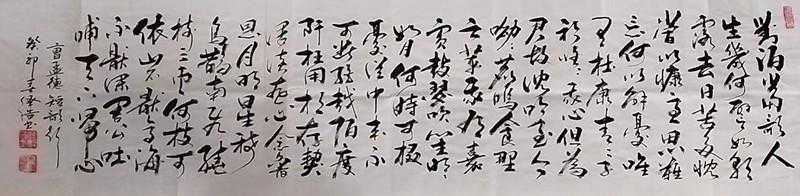 對酒當歌人
生幾何譬如朝
露去日苦多慨
當以慷憂思難
忘何以解憂唯
有杜康青青子
衿悠悠我心但為
君故沈吟至今
呦呦鹿鳴食野
之苹我有嘉
賓鼓瑟吹笙明明
如月何時可掇
憂從中來不
可斷絕越陌度
阡枉用相存契
闊談讌心念舊
恩月明星稀
烏鵲南飛繞
樹三匝何枝可
依山不厭高海
不厭深周公吐
哺天下歸心
曹孟德短歌行
癸卯